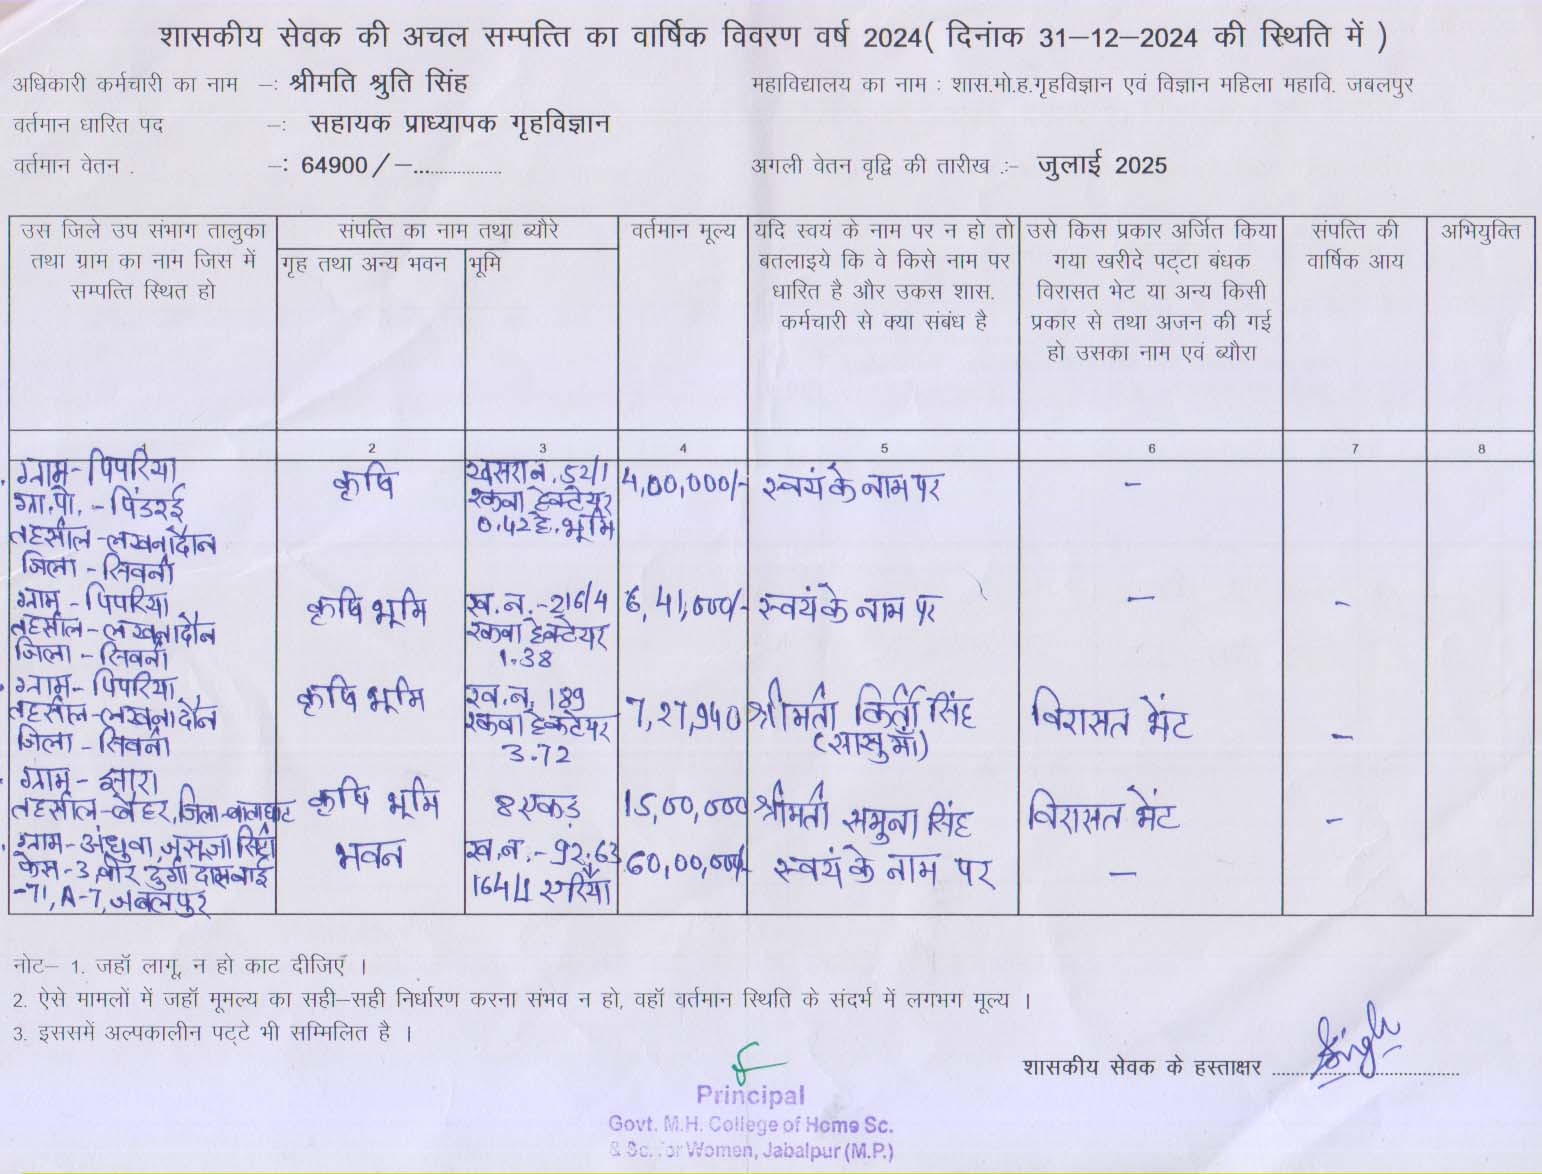 शासकीय सेवक की अचल सम्पत्ति का वार्षिक विवरण वर्ष 2024( दिनांक 31–12–2024 की स्थिति में )
अधिकारी कर्मचारी का नाम –: श्रीमति श्रुति सिंह महाविद्यालय का नाम : शास.मो.ह.गृहविज्ञान एवं विज्ञान महिला महावि. जबलपुर
वर्तमान धारित पद –: सहायक प्राध्यापक गृहविज्ञान
वर्तमान वेतन . –: 64900/–................. अगली वेतन वृद्वि की तारीख :– जुलाई 2025
उस जिले उप संभाग तालुका
तथा ग्राम का नाम जिस में
सम्पत्ति स्थित हो
संपत्ति का नाम तथा ब्यौरे
गृह तथा अन्य भवन
भूमि
वर्तमान मूल्य
यदि स्वयं के नाम पर न हो तो
बतलाइये कि वे किसे नाम पर
धारित है और उकस शास.
कर्मचारी से क्या संबंध है
उसे किस प्रकार अर्जित किया
गया खरीदे पट्टा बंधक
विरासत भेट या अन्य किसी
प्रकार से तथा अजन की गई
हो उसका नाम एवं ब्यौरा
संपत्ति की
वार्षिक आय
अभियुक्ति
1 2 3 4 5 6 7 8
ग्राम - पिपरिया
ग्रा.पो. - पिंडरई
तहसील - लखनादौन
जिला - सिवनी
कृषि
खसरा न. 52/1
रकवा हेक्टेयर
0.42 हे. भूमि
4,00,000/-
स्वयं के नाम पर
–
ग्राम - पिपरिया
तहसील - लखनादौन
जिला - सिवनी
कृषि भूमि
ख.न. - 216/4
रकवा हेक्टेयर
1.38
6,41,000/-
स्वयं के नाम पर
–
–
ग्राम - पिपरिया
तहसील - लखनादौन
जिला - सिवनी
कृषि भूमि
ख.न. 189
रकवा हेक्टेयर
3.72
7,27,940
श्रीमती किर्ती सिंह
(सासु माँ)
विरासत भेंट
–
ग्राम -
तहसील - बैहर, जिला - बालाघाट
कृषि भूमि
8 एकड़
15,00,000
श्रीमती जमुना सिंह
विरासत भेंट
–
ग्राम - अंधुवा, जसूजा सिटी
फेस - 3, वीर दुर्गादास वार्ड
-71, A-7, जबलपुर
भवन
ख.न. - 92,63
164/1 एरिया
60,00,000/-
स्वयं के नाम पर
–
नोट– 1. जहॉ लागू, न हो काट दीजिएँ ।
2. ऐसे मामलों में जहॉ मूमल्य का सही–सही निर्धारण करना संभव न हो, वहॉ वर्तमान स्थिति के संदर्भ में लगभग मूल्य ।
3. इससमें अल्पकालीन पट्टे भी सम्मिलित है ।
शासकीय सेवक के हस्ताक्षर ........ Singh ........
Principal
Govt. M.H. College of Home Sc.
& Sc. for Women, Jabalpur (M.P.)